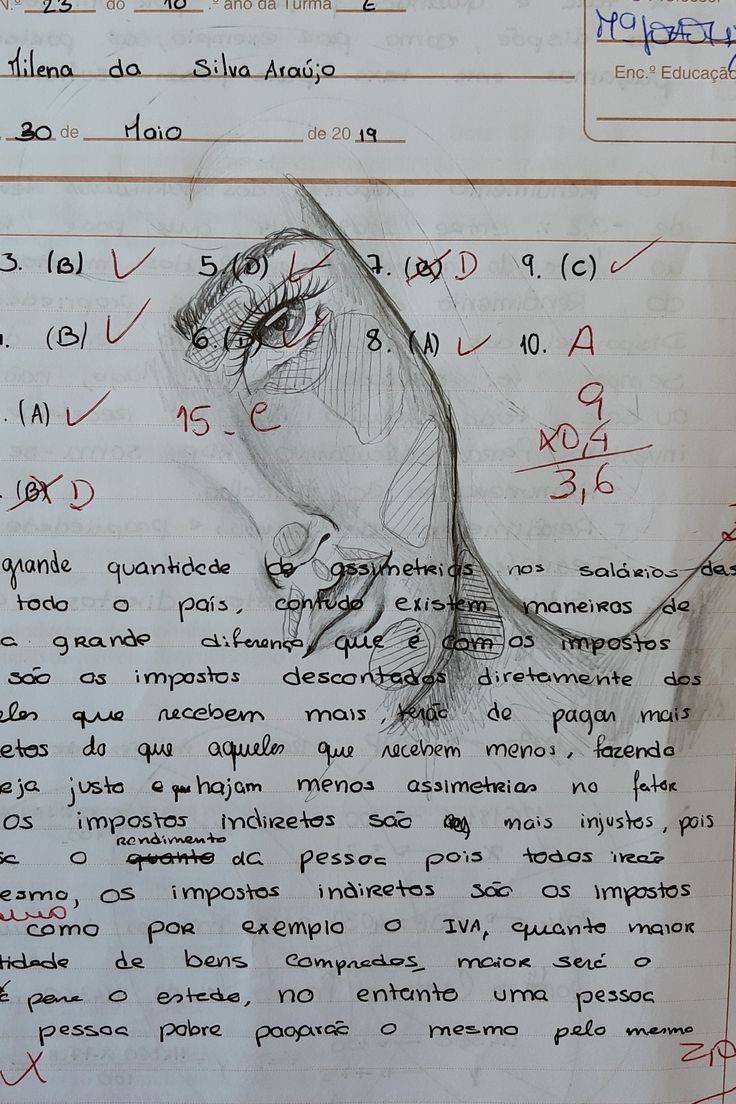 N.º 23 do 10 .º ano da Turma E
Milena da Silva Araújo
Enc.º Educação
30 de Maio de 2019
3. (B) 5. (D) 7. D 9. (C)
(B) 6. 8. (A) 10. A
. (A) 15 - e 9
x0,4
D 3,6
grande quantidade de assimetrias nos salários das
todo o país, contudo existem maneiras de
a grande diferença, que é com os impostos
são os impostos descontados diretamente dos
eles que recebem mais, terão de pagar mais
etos do que aqueles que recebem menos, fazendo
eja justo e que hajam menos assimetrias no fator
os impostos indiretos são mais injustos, pois
rendimento
se o quanto da pessoa pois todos irão
esmo, os impostos indiretos são os impostos
como por exemplo o IVA, quanto maior
tidade de bens comprados, maior será o
para o estado, no entanto uma pessoa
pessoa pobre pagarão o mesmo pelo mesmo